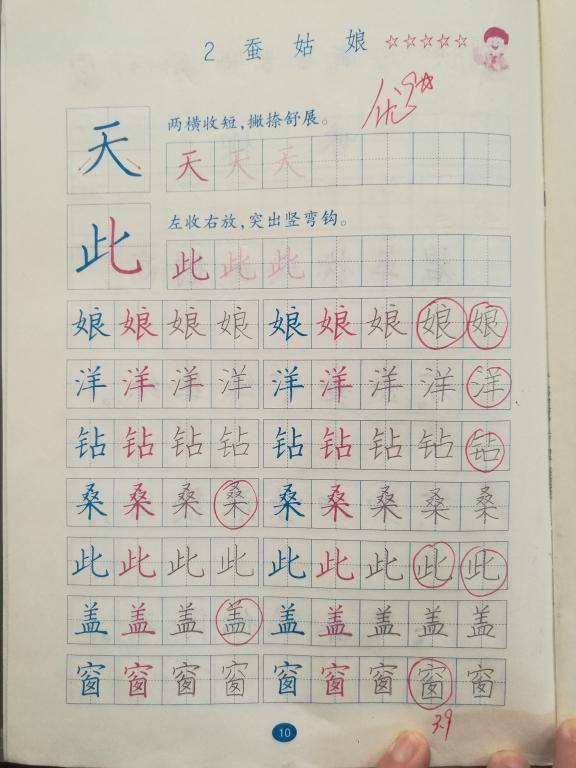 2 蚕 姑 娘 ☆☆☆☆☆
优 9
天 两横收短，撇捺舒展。
天 天 天
此 左收右放，突出竖弯钩。
此 此 此
娘 娘 娘 娘 娘 娘 娘 娘 娘
洋 洋 洋 洋 洋 洋 洋 洋 洋
钻 钻 钻 钻 钻 钻 钻 钻 钻
桑 桑 桑 桑 桑 桑 桑 桑 桑
此 此 此 此 此 此 此 此 此
盖 盖 盖 盖 盖 盖 盖 盖 盖
窗 窗 窗 窗 窗 窗 窗 窗 窗
3.9
10